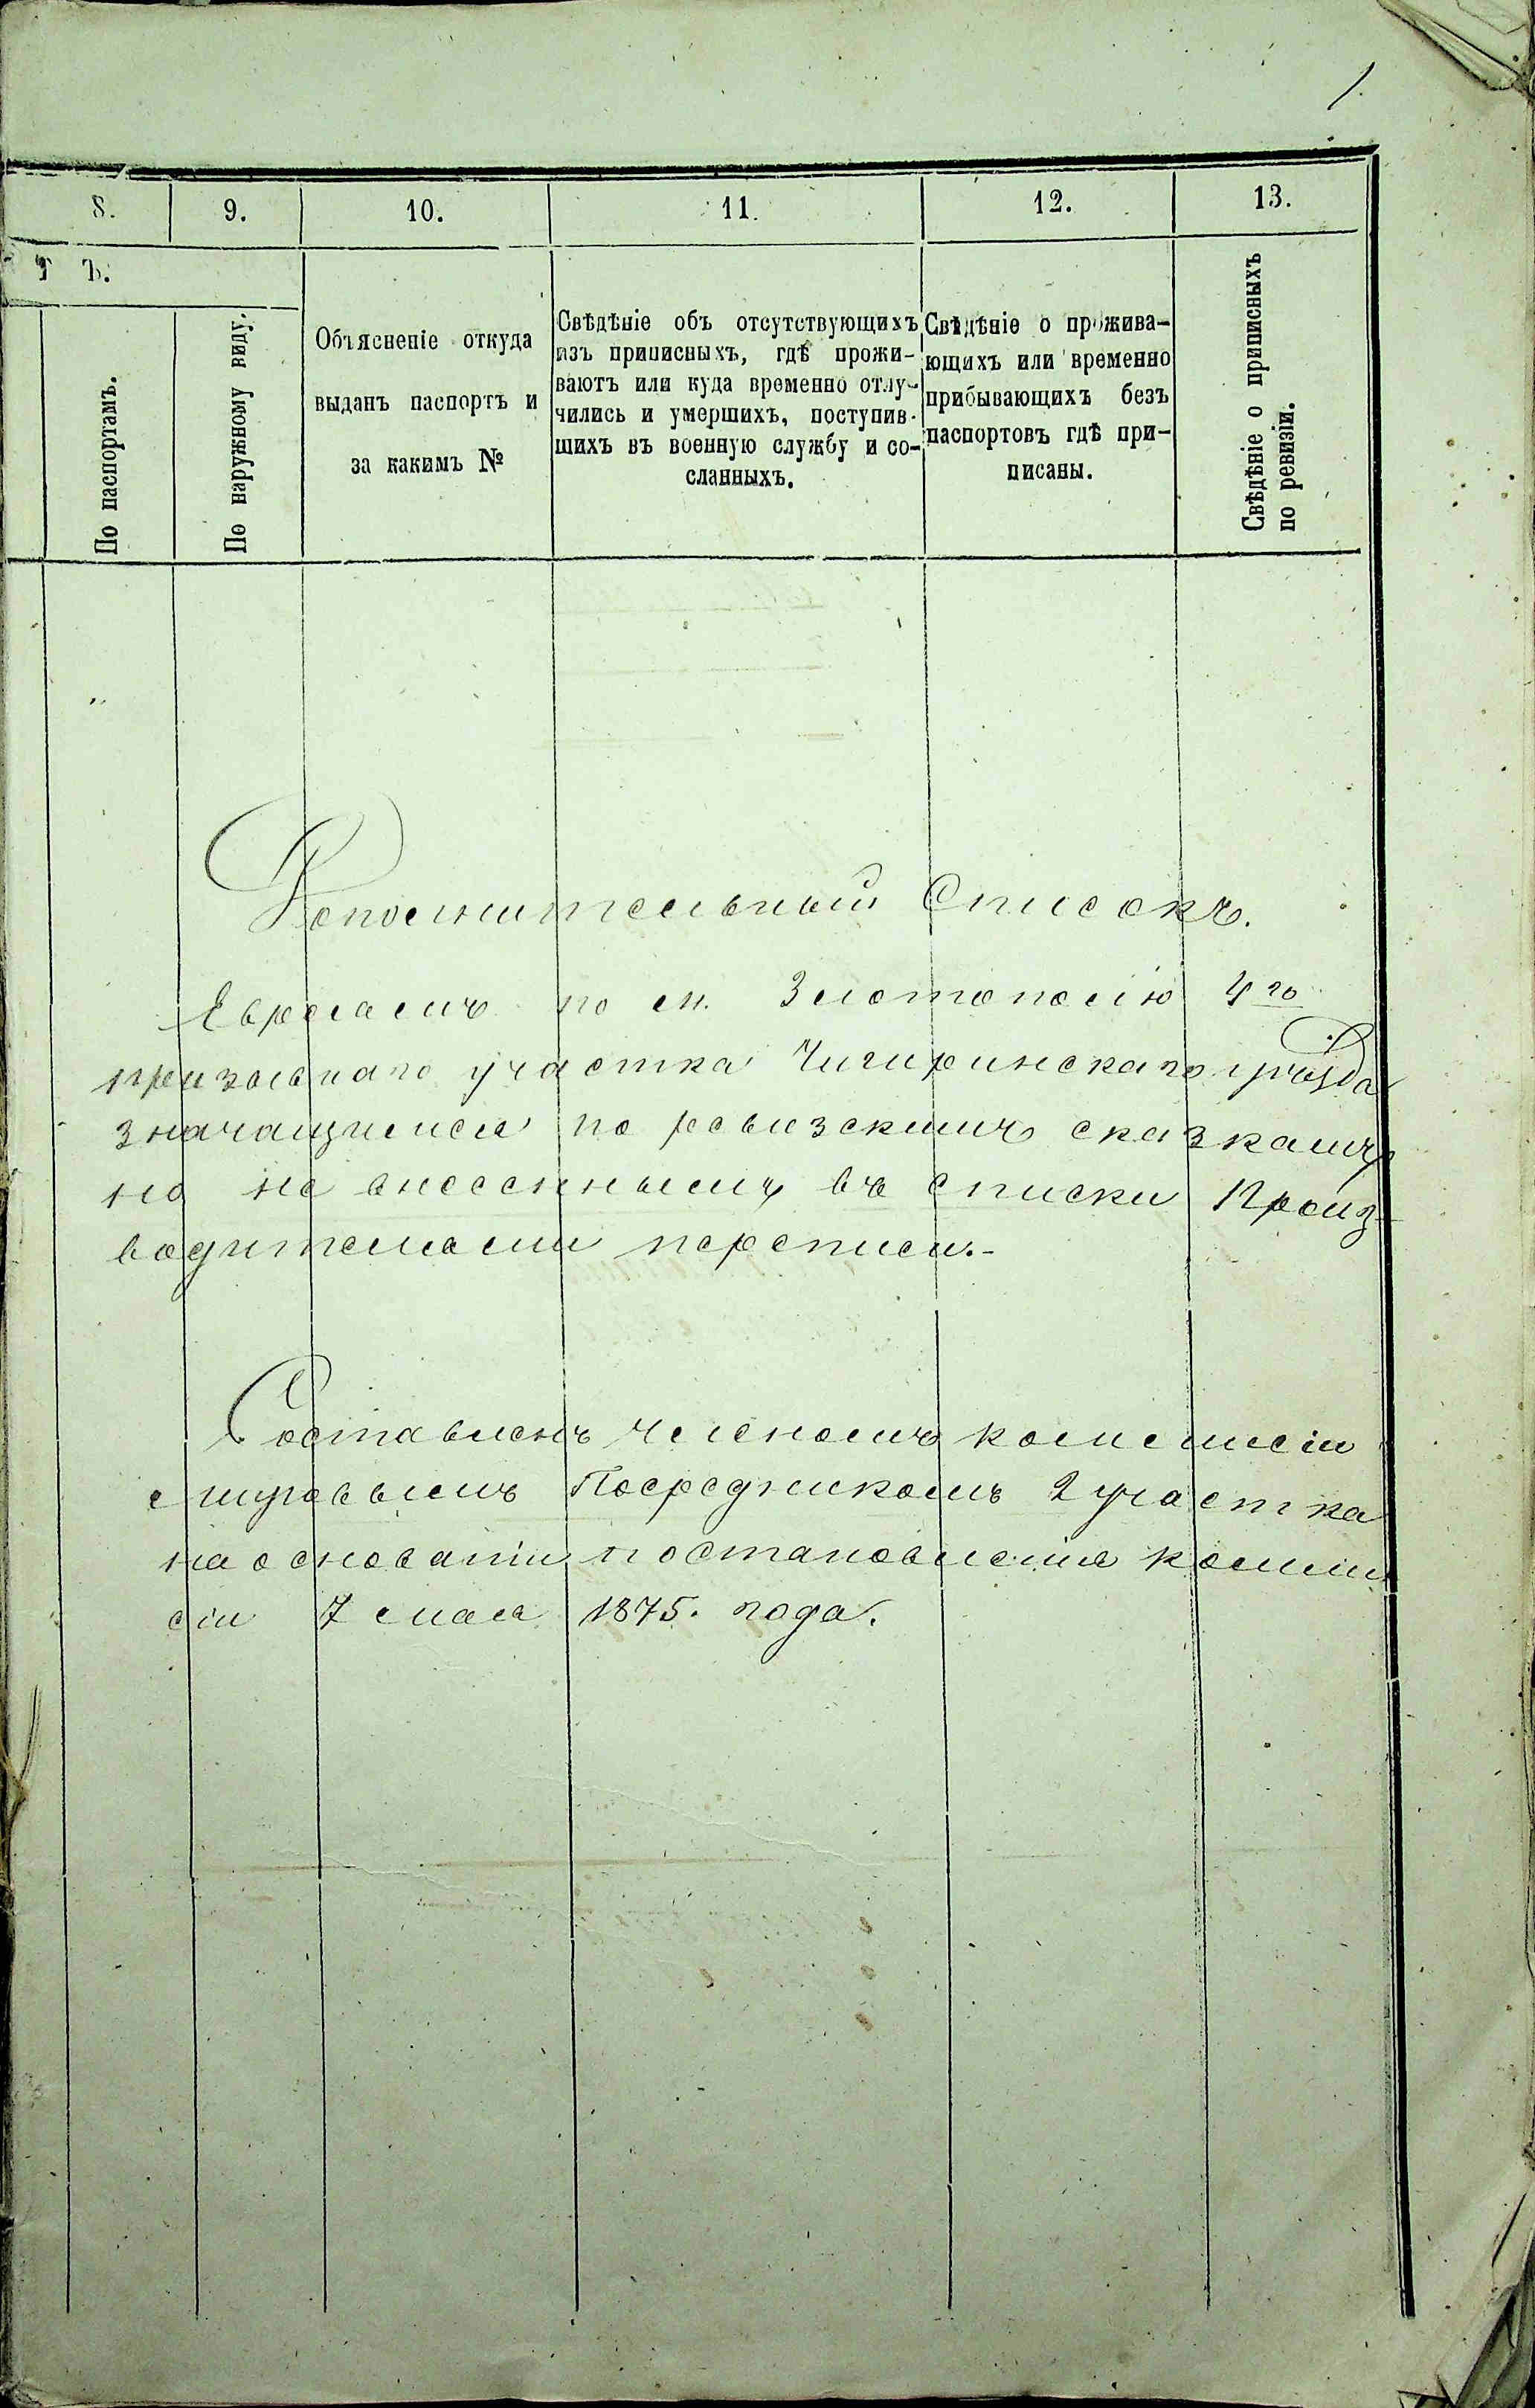 1.
8. 9. 10. 11. 12. 13.
Т Ъ.
По паспортамъ.
По наружному виду.
Объясненіе откуда
выданъ паспортъ и
за какимъ №
Свѣдѣніе объ отсутствующихъ
изъ приписныхъ, гдѣ прожи-
ваютъ или куда временно отлу-
чились и умершихъ, поступив-
шихъ въ военную службу и со-
сланныхъ.
Свѣдѣніе о прожива-
ющихъ или временно
прибывающихъ безъ
паспортовъ гдѣ при-
писаны.
Свѣдѣніе о приписныхъ
по ревизіи.
Дополнительный Списокъ.
Евреямъ по м. Златополію 4го
призывнаго участка Чигиринскаго уѣзда
значащимся по ревизскимъ сказкамъ
но не внесеннымъ въ списки Произ-
водителями переписи.-
Составленъ Членомъ коммисіи
мировымъ Посредникомъ 2 участка
на основаніи постановленія комми
сіи 7 мая 1875. года.